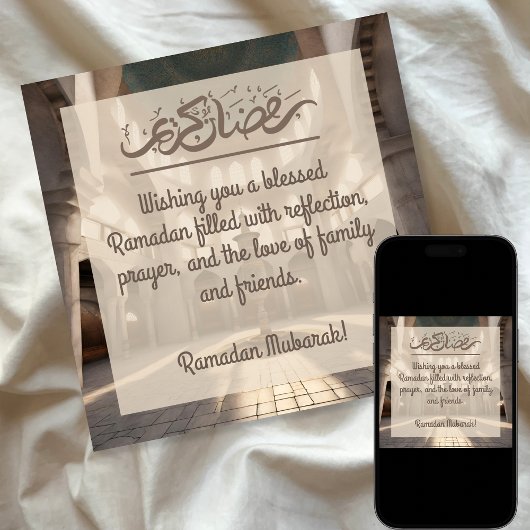 رمضان كريم
Wishing you a blessed
Ramadan filled with reflection,
prayer, and the love of family
and friends.
Ramadan Mubarak!
رمضان كريم
Wishing you a blessed
Ramadan filled with reflection,
prayer, and the love of family
and friends.
Ramadan Mubarak!